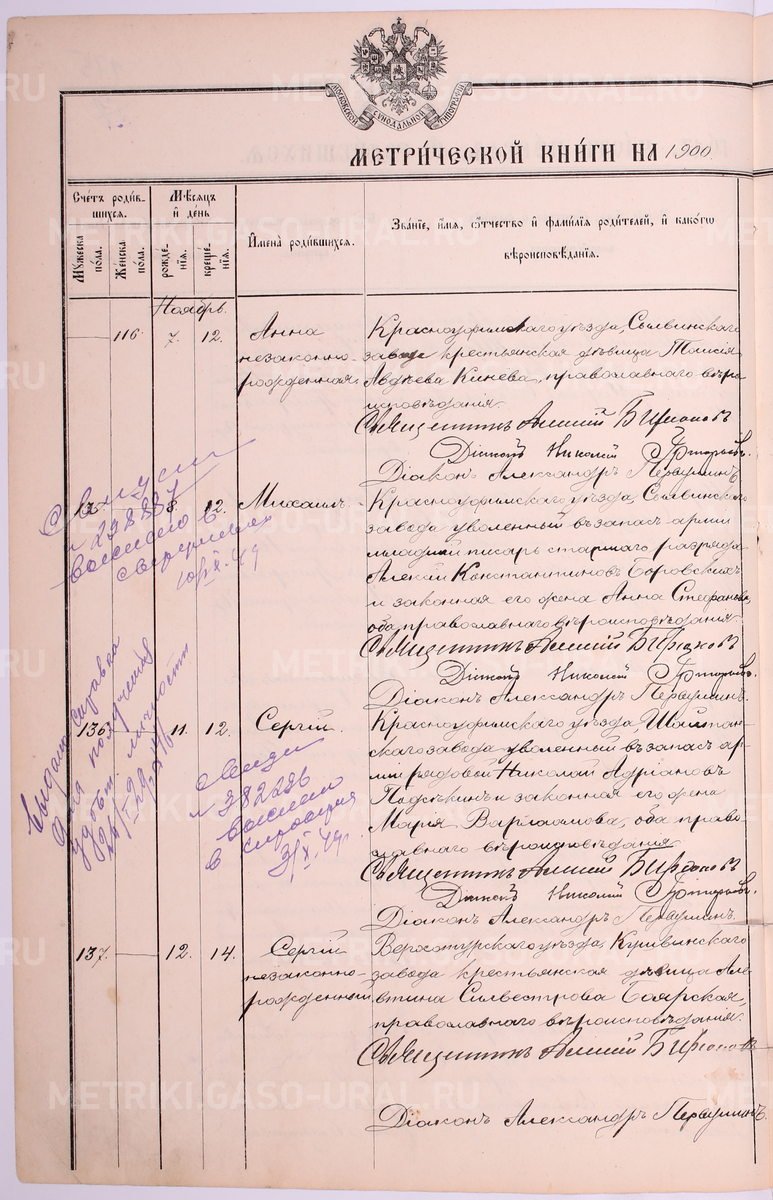 МЕТРИЧЕСКОЙ КНИГИ НА 1900
Счетъ родив-
шихся.
Мѣсяцъ
и день
Имена родившихся.
Званіе, имя, отчество и фамилія родителей, и какого
вѣроисповѣданія.
Мужеска
пола.
Женска
пола.
рожде-
нія.
креще-
нія.
Ноябрь.
116. 7. 12. Анна
незаконно-
рожденная
Красноуфимскаго уѣзда, Сылвинскаго
завода крестьянская дѣвица Таисія
Авдѣева Кинева, православнаго вѣро
исповѣданія.
Священникъ Алексій Бирюковъ
Діаконъ Николай
Діаконъ Александръ Первушинъ.
8. 12. Михаилъ.
Красноуфимскаго уѣзда, Сылвинскаго
завода уволенный въ запасъ арміи
младшій писарь старшаго разряда
Алексій Константиновъ Боровскихъ
и законная его жена Анна Стефанова,
оба православнаго вѣроисповѣданія.
Священникъ Алексій Бирюковъ
Діаконъ Николай
Діаконъ Александръ Первушинъ.
136. 11. 12. Сергій.
Красноуфимскаго уѣзда, Шайтан-
скаго завода уволенный въ запасъ ар-
міи рядовой Николай Адріановъ
и законная его жена
Марія Варлаамова, оба право-
славнаго вѣроисповѣданія.
Священникъ Алексій Бирюковъ
Діаконъ Николай
Діаконъ Александръ Первушинъ.
137. 12. 14. Сергій
незаконно-
рожденный
Верхотурскаго уѣзда, Кушвинскаго
завода крестьянская дѣвица Але-
втина Сильвестрова Боярская,
православнаго вѣроисповѣданія.
Священникъ Алексій Бирюковъ
Діаконъ Александръ Первушинъ.
№ 238887
Выдана справка
для получения
удост. личности
№ 382236
в
3/X.49г.
METRIKI.GASO-URAL.RU